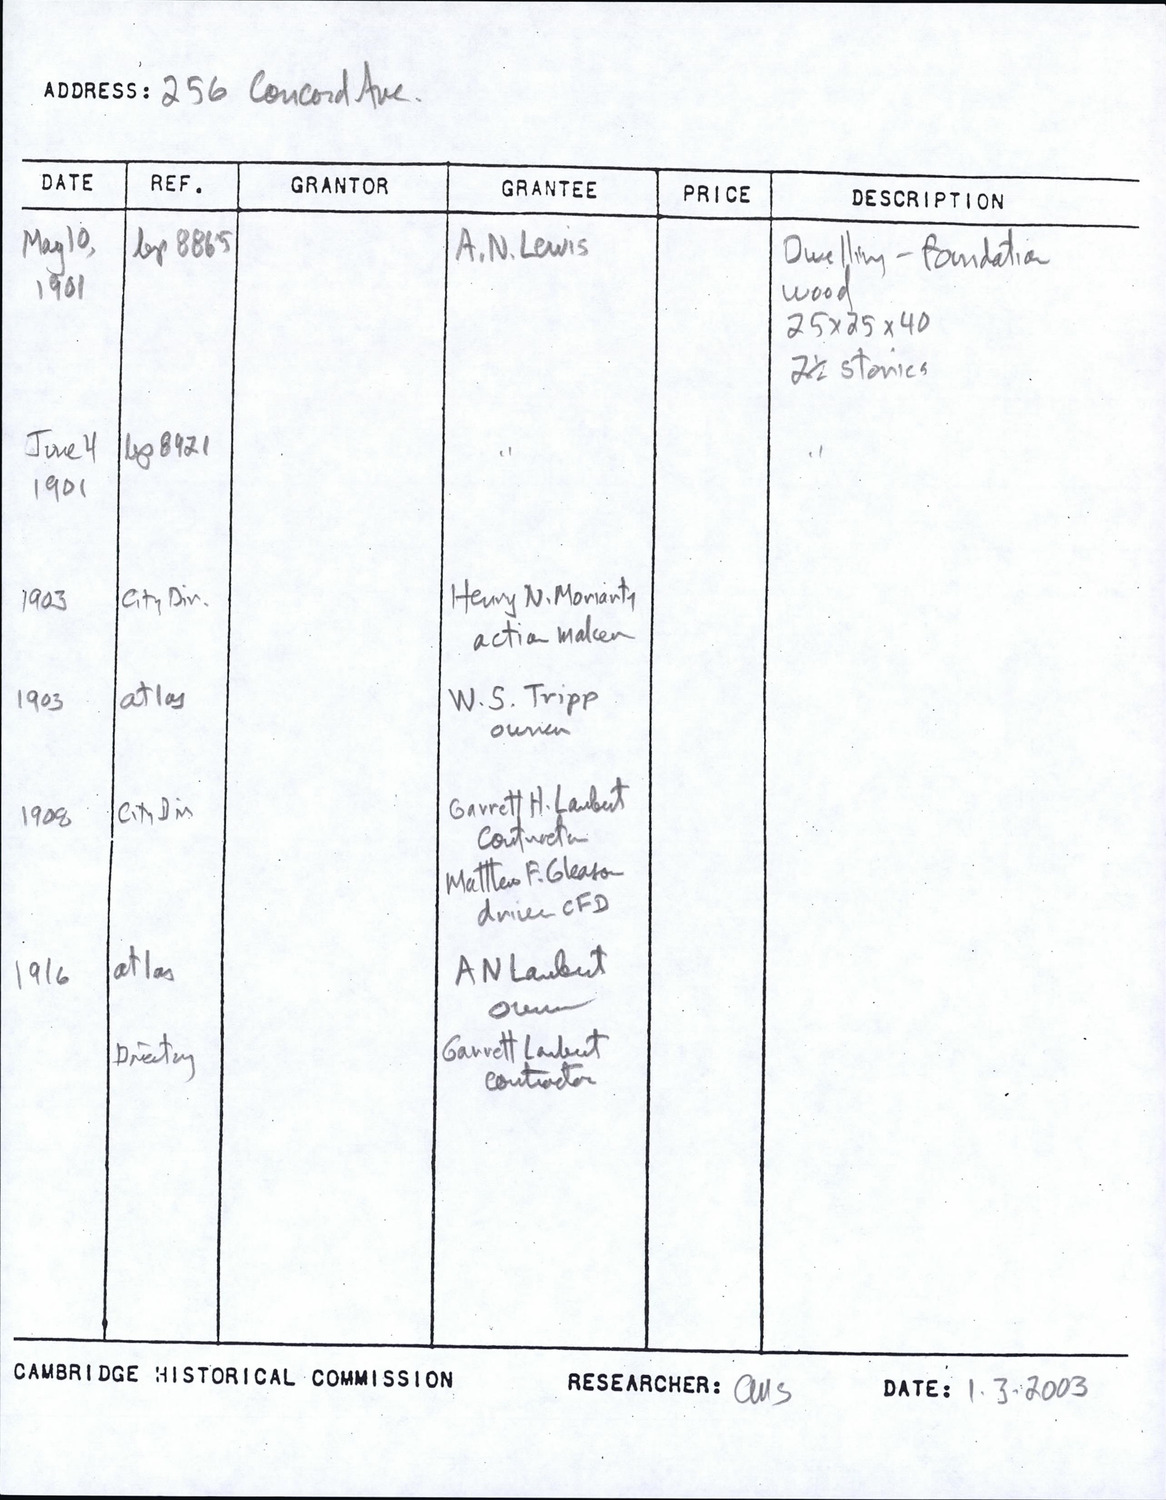 ADDRESS: 256 Concord Ave.
DATE REF. GRANTOR GRANTEE PRICE DESCRIPTION
May 10, bp 8865 A.N. Lewis Dwelling - foundation
1901 wood
25x25x40
2½ stories
June 4 bp 8921 " "
1901
1903 City Dir. Henry N. Moriarty
action maker
1903 atlas W.S. Tripp
owner
1908 City Dir Garrett H. Lambert
Contractor
Matthew F. Gleason
driver CFD
1916 atlas A N Lambert
owner
Directory Garrett Lambert
contractor
CAMBRIDGE HISTORICAL COMMISSION RESEARCHER: DATE: 1.3.2003